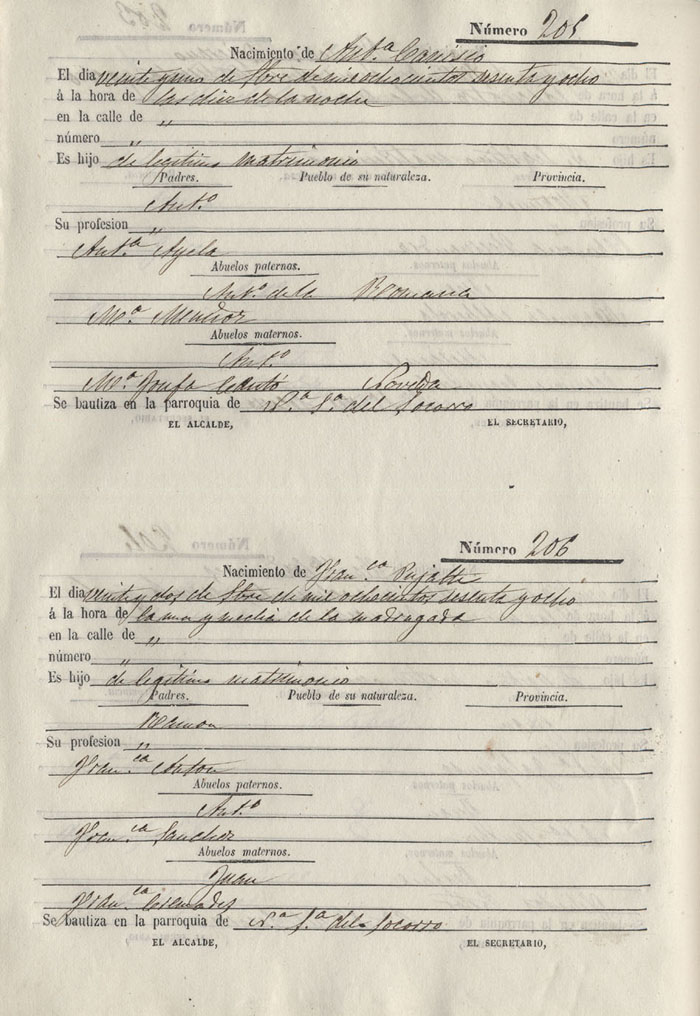 Número 205
Nacimiento de Ant.ª Canicio
El dia veinte y uno de Sbre de mil ochocientos sesenta y ocho
á la hora de las diez de la noche
en la calle de "
número "
Es hijo de legitimo matrimonio
Padres. Pueblo de su naturaleza. Provincia.
Ant.º
Su profesion "
Ant.ª Ayela
Abuelos paternos.
Ant.º de la Romana
M.ª
Abuelos maternos.
Ant.º
M.ª Josefa Cantó Novelda
Se bautiza en la parroquia de N.ª S.ª del Socorro
EL ALCALDE, EL SECRETARIO,
Número 206
Nacimiento de Fran.ca Pujalte
El dia veinte y dos de Sbre de mil ochocientos sesenta y ocho
á la hora de la una y media de la madrugada
en la calle de "
número "
Es hijo de legitimo matrimonio
Padres. Pueblo de su naturaleza. Provincia.
Ramon
Su profesion "
Fran.ca Anton
Abuelos paternos.
Ant.º
Fran.ca Sanchez
Abuelos maternos.
Juan
Fran.ca
Se bautiza en la parroquia de N.ª S.ª del Socorro
EL ALCALDE, EL SECRETARIO,